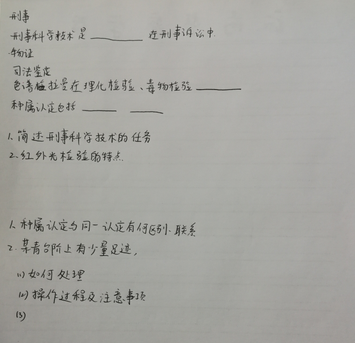 刑事
刑事科学技术是______ 在刑事诉讼中
物证
司法鉴定
色谱 技术在理化检验、毒物检验______
种属认定包括____ ____
1. 简述刑事科学技术的任务
2. 红外光检验的特点
1. 种属认定与同一认定有何区别.联系
2. 某青台阶上有少量足迹。
(1) 如何处理
(2) 操作过程及注意事项
(3)